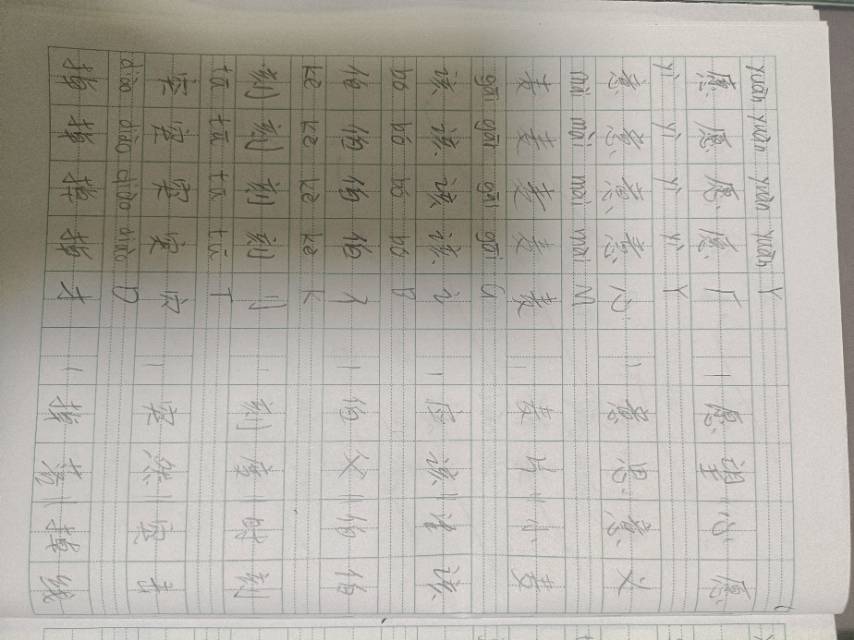 yuàn yuàn yuàn yuàn Y
愿 愿 愿 愿 厂 | 愿望 | 心愿
yì yì yì yì Y
意 意 意 意 心 | 意思 | 意义
mài mài mài mài M
麦 麦 麦 麦 麦 | 麦片 | 小麦
gāi gāi gāi gāi G
该 该 该 该 讠 | 应该 | 该
bó bó bó bó B
伯 伯 伯 伯 亻 | 伯父 | 伯伯
kè kè kè kè K
刻 刻 刻 刻 刂 | 刻度 | 时刻
tū tū tū tū T
突 突 突 突 穴 | 突然 | 突击
diào diào diào diào D
掉 掉 掉 掉 扌 | 掉落 | 掉